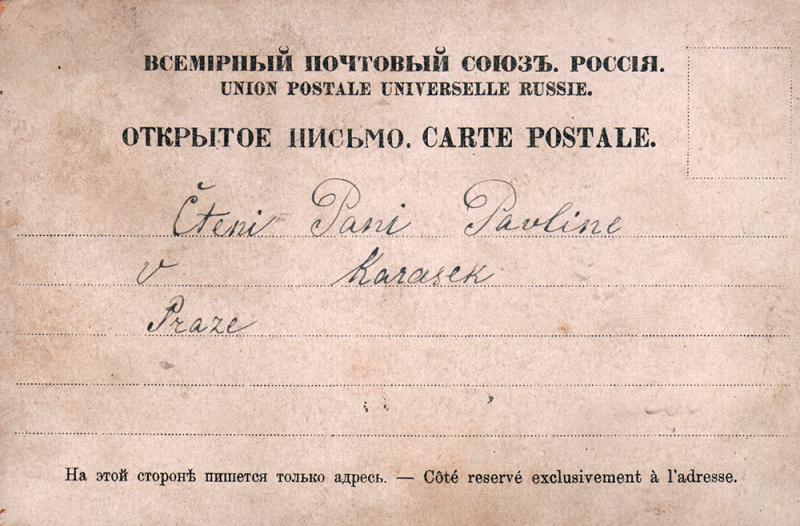 ВСЕМІРНЫЙ ПОЧТОВЫЙ СОЮЗЪ. РОССІЯ.
UNION POSTALE UNIVERSELLE RUSSIE.
ОТКРЫТОЕ ПИСЬМО. CARTE POSTALE.
Čteni Pani Pavline
v Karasek
Praze
На этой сторонѣ пишется только адресъ. — Côté reservé exclusivement à l'adresse.